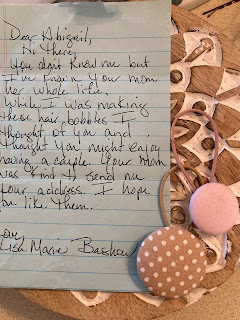 Dear Abigail,
Hi there,
You don't know me but
I've known your mom
her whole life.
While I was making
these hair bobbles I
thought of you and
thought you might enjoy
having a couple. Your mom
was kind to send me
your address. I hope
you like them.
Love,
Lisa Marie Bashow